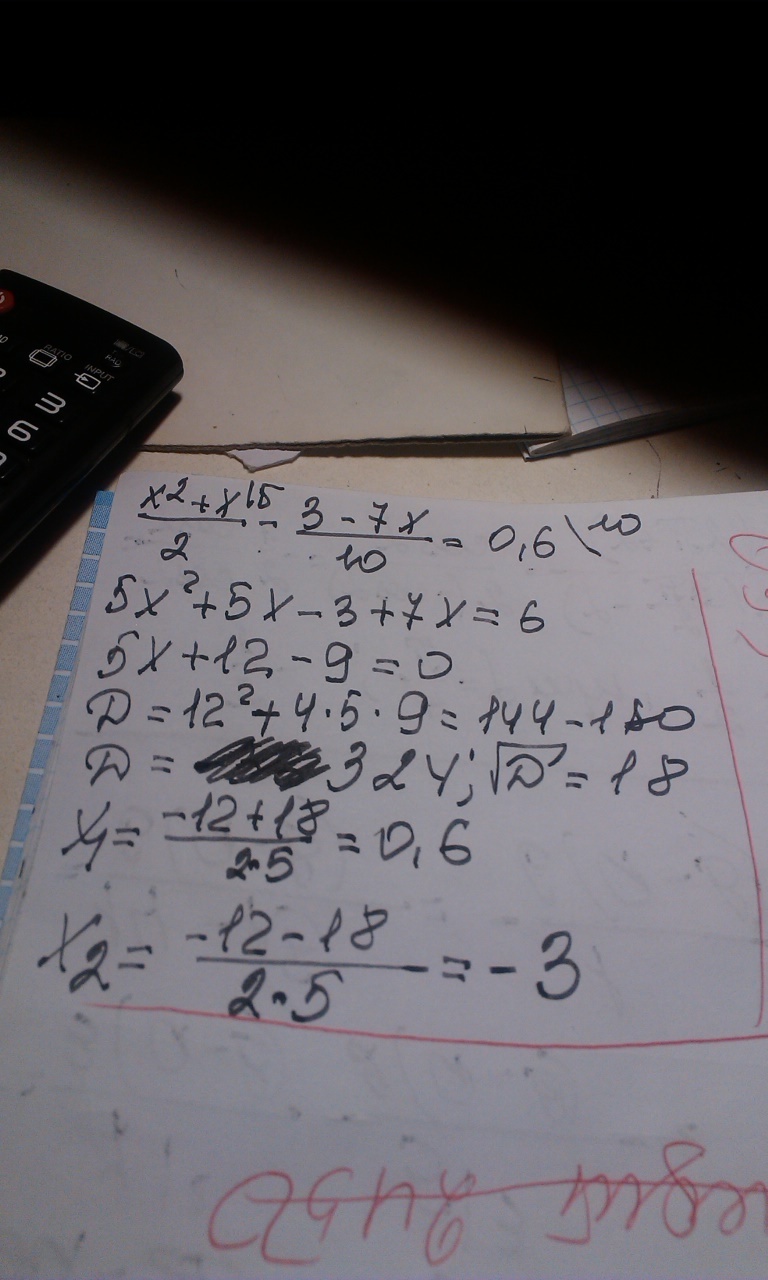 RATIO
INPUT
3
6
x²+x\5 / 2 - 3-7x / 10 = 0,6\10
5x²+5x-3+7x=6
5x+12-9=0
D=12²+4·5·9=144-180
D= 324; √D=18
x₁= -12+18 / 2·5 =0,6
x₂= -12-18 / 2·5 =-3